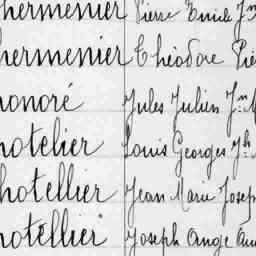 hermenier Pierre Emile Jn
hermenier Théodore Pie
honoré Jules Julien Jn M
hotelier Louis Georges Jh
hotellier Jean Marie Joseph
hotellier Joseph Ange Au